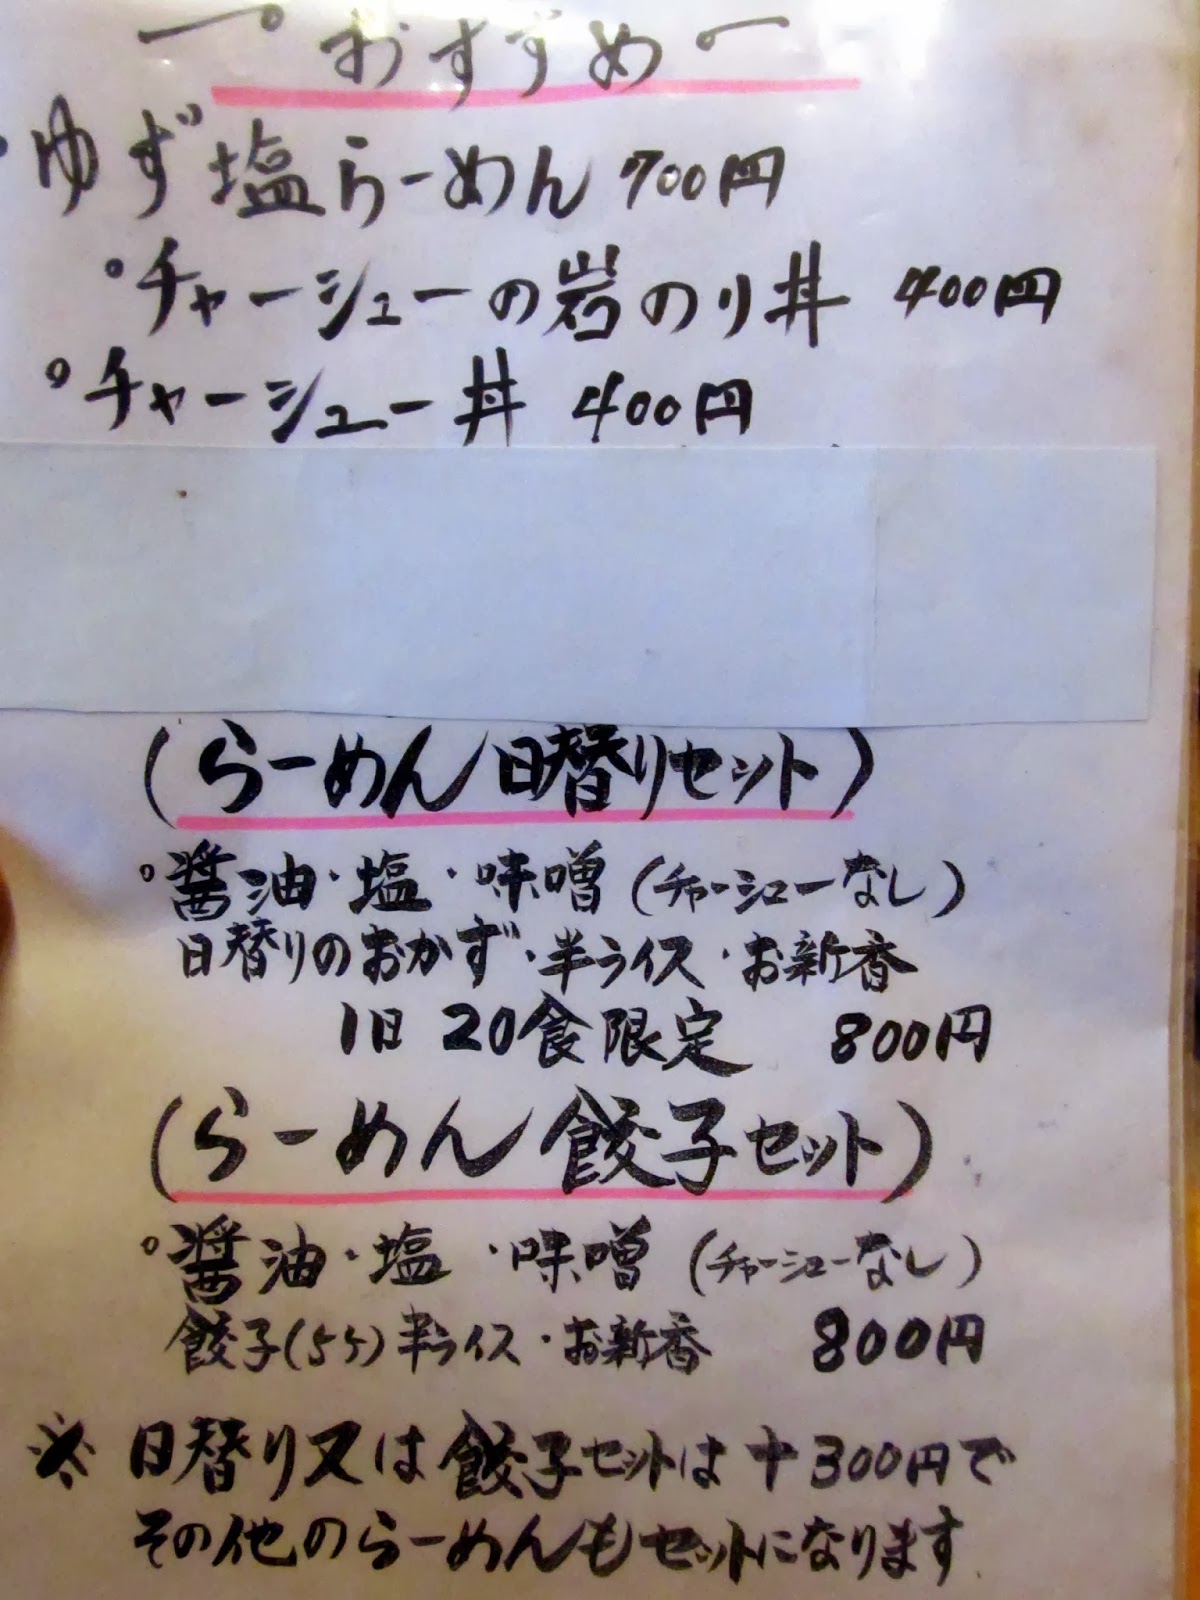 おすすめ
・ゆず塩らーめん 700円
°チャーシューの岩のり丼 400円
°チャーシュー丼 400円
(らーめん日替りセット)
°醤油・塩・味噌(チャーシューなし)
日替りのおかず・半ライス・お新香
1日20食限定 800円
(らーめん餃子セット)
°醤油・塩・味噌(チャーシューなし)
餃子(5ケ)半ライス・お新香 800円
※日替り又は餃子セットは+300円で
その他のらーめんもセットになります